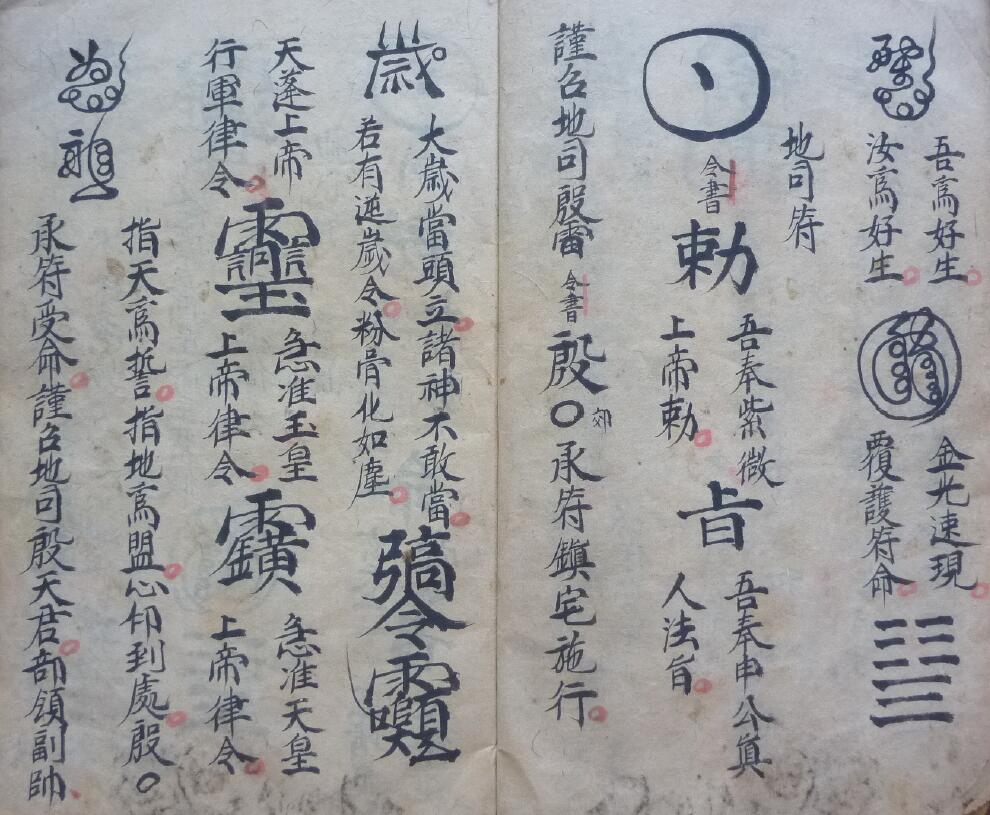 吾爲好生
汝爲好生
金光速現
覆護符命
地司符
令書
勅
吾奉紫微
上帝勅
吾奉申公眞
人法旨
謹召地司殷雷
令書
殷
郊
承符鎮宅施行
歳
大嵗當頭立諸神不敢當
若有逆嵗令粉骨化如塵
令
天蓬上帝
行軍律令
急准玉皇
上帝律令
急准天皇
上帝律令
指天爲誓指地爲盟心印到處殷
承符受命謹召地司殷天君部領副帥